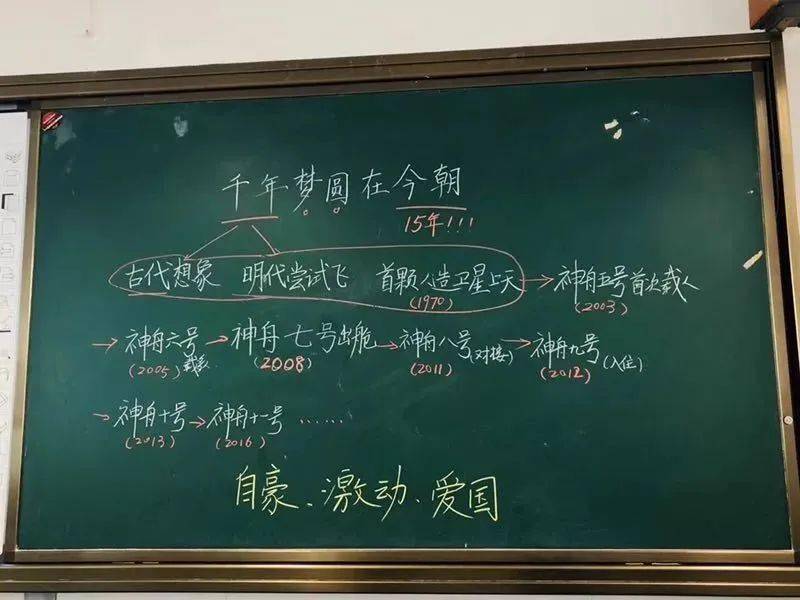 千年梦圆在今朝
15年!!!
古代想象 明代尝试飞 首颗人造卫星上天→神舟五号首次载人
(1970) (2003)
→神舟六号载多→神舟七号出舱→神舟八号(对接)→神舟九号(入住)
(2005) (2008) (2011) (2012)
→神舟十号→神舟十一号……
(2013) (2016)
自豪、激动、爱国